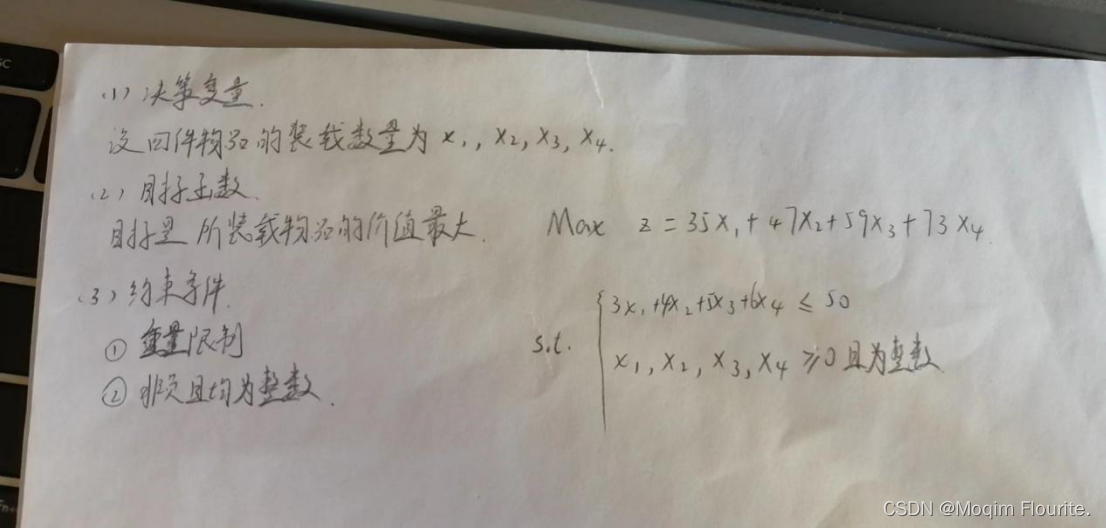 (1) 决策变量.
设四件物品的装载数量为 x₁, x₂, x₃, x₄.
(2) 目标函数.
目标是 所装载物品的价值最大. Max z = 35x₁ + 47x₂ + 59x₃ + 73x₄.
(3) 约束条件.
① 重量限制
② 非负且均为整数.
s.t. { 3x₁+4x₂+5x₃+6x₄ ≤ 50
x₁, x₂, x₃, x₄ ≥ 0 且为整数.
CSDN @Moqim Flourite.